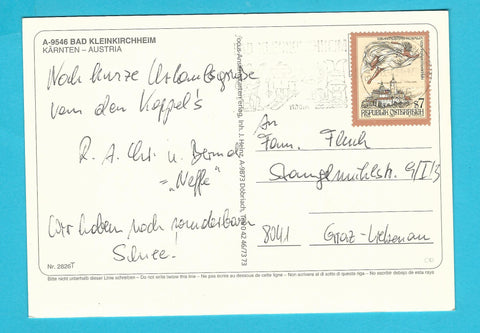 A-9546 BAD KLEINKIRCHHEIM
KÄRNTEN – AUSTRIA
Noch kurze Urlaubsgrüße
von den Koppel's
R. A. Chr. u. Bernd
= „Neffe"
Wir haben noch wunderbaren
Schnee!
Nr. 2826T
An
Fam. Fluch
Stangelmühlstr. 9/I/3
8041 Graz-Liebenau
REPUBLIK ÖSTERREICH
S7
Bitte nicht unterhalb dieser Linie schreiben – Do not write below this line – Ne pas écrire au dessous de cette ligne – Non scrivere al di sotto di questa riga – No escribir debajo de esta raya